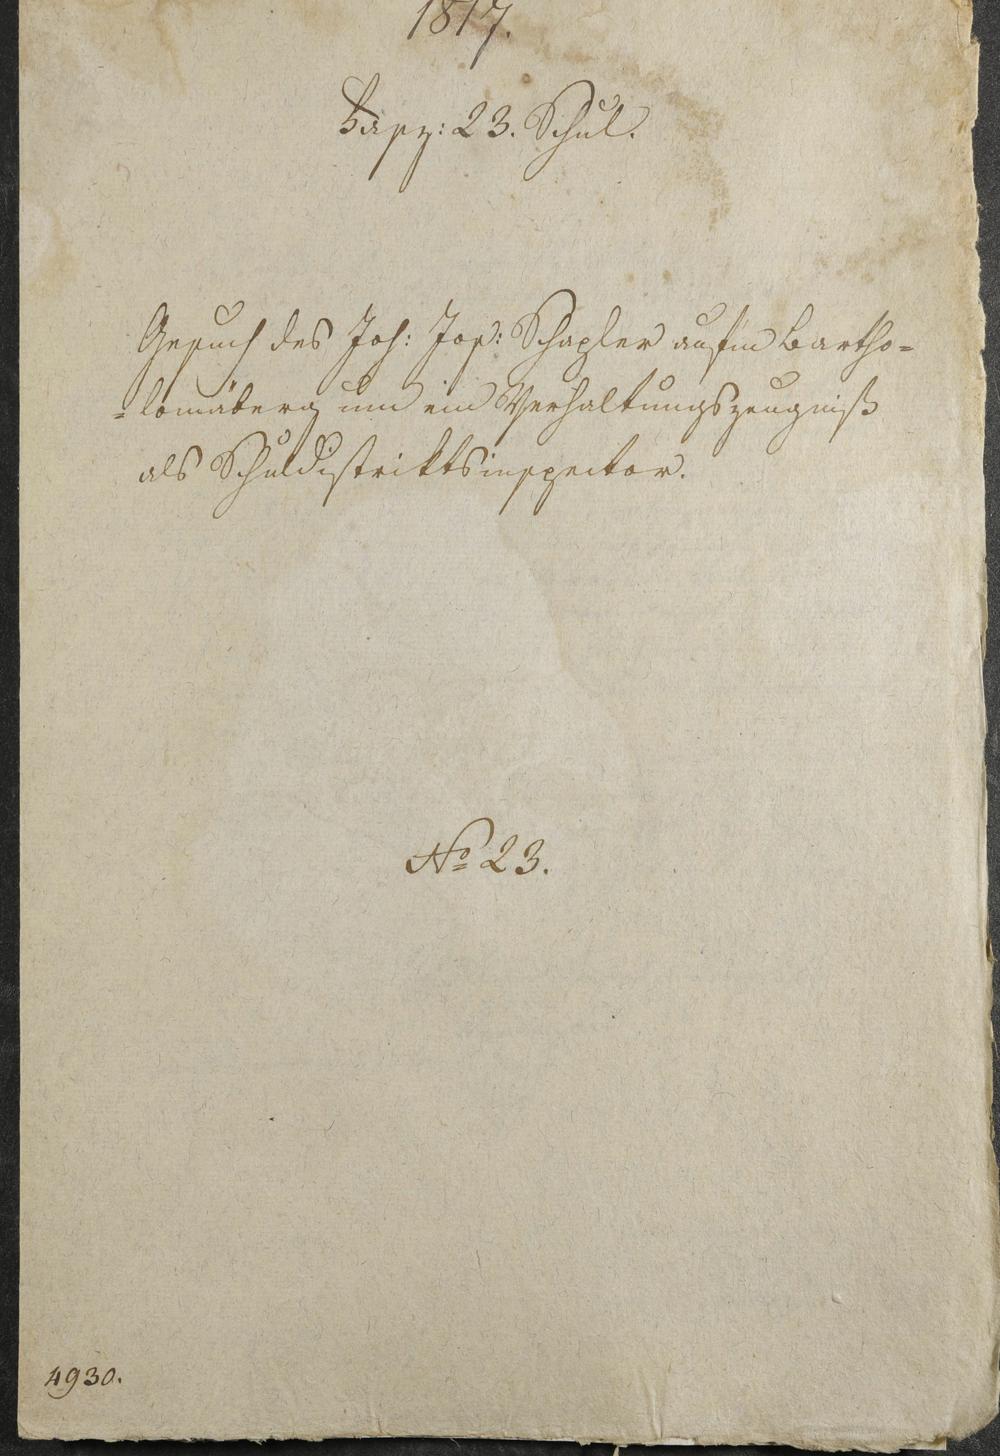 1817.
Fasz: 23. Schul.
Gesuch des Joh: Jos: Schapler auf'm Bartho=
=lomäberg um ein Verhaltungszeugniß
als Schuldistriktsinspector.
No 23.
4930.